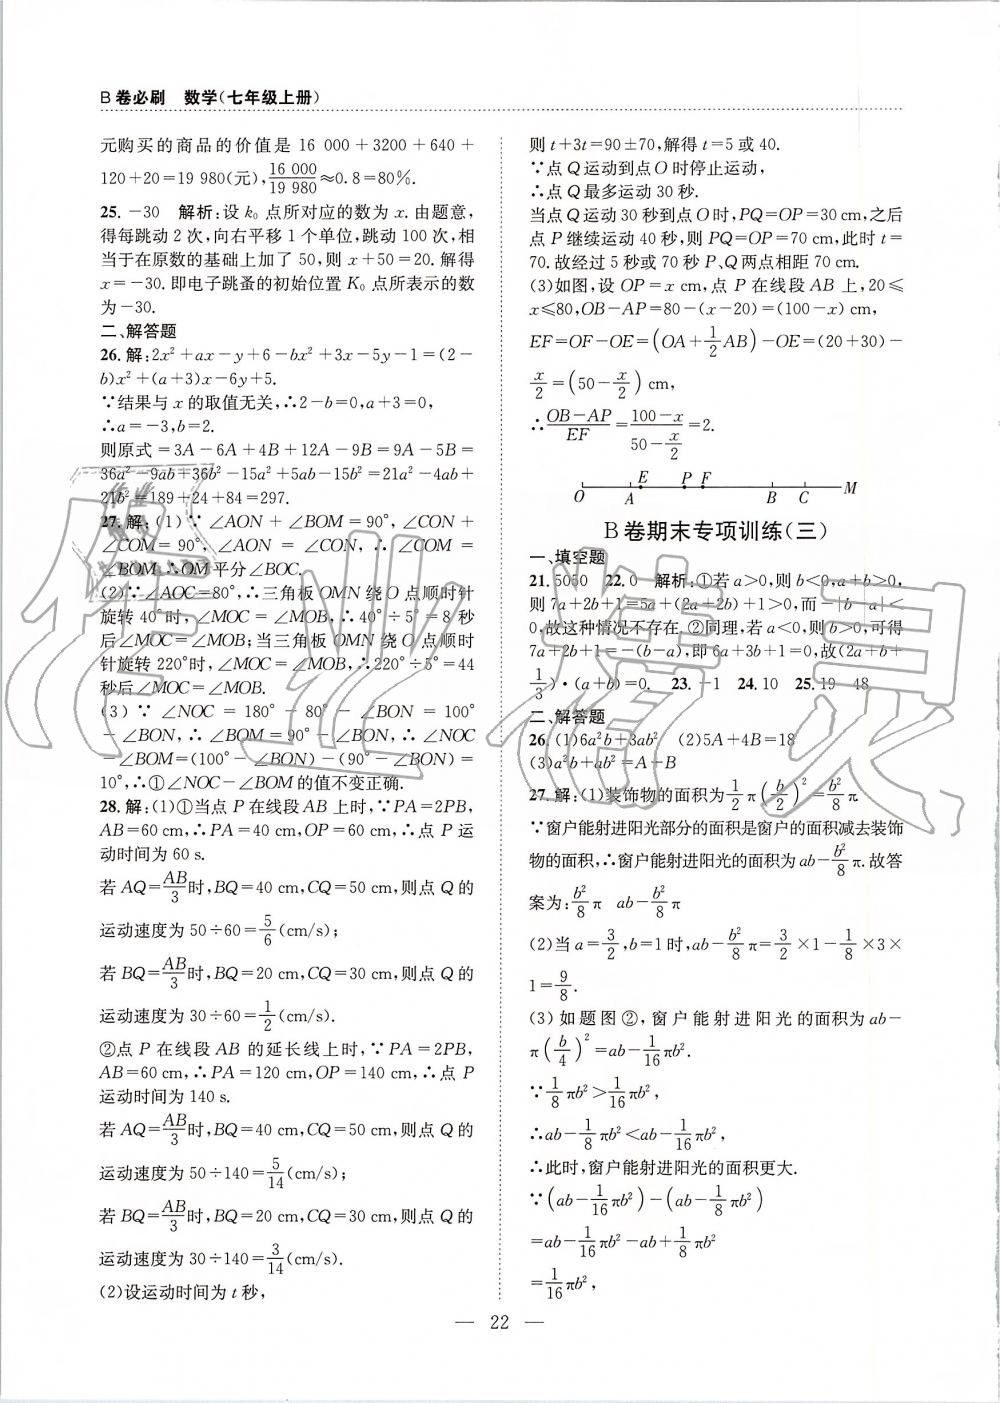 B卷必刷　数学(七年级上册)
元购买的商品的价值是 16 000+3200+640+
120+20=19 980(元),16 000/19 980≈0.8=80%.
25. -30　解析:设 k₀ 点所对应的数为 x. 由题意,
得每跳动 2 次,向右平移 1 个单位,跳动 100 次,相
当于在原数的基础上加了 50,则 x+50=20. 解得
x=-30. 即电子跳蚤的初始位置 K₀ 点所表示的数
为-30.
二、解答题
26. 解:2x²+ax-y+6-bx²+3x-5y-1=(2-
b)x²+(a+3)x-6y+5.
∵结果与 x 的取值无关,∴2-b=0,a+3=0,
∴a=-3,b=2.
则原式=3A-6A+4B+12A-9B=9A-5B=
36a²-9ab+36b²-15a²+5ab-15b²=21a²-4ab+
21b²=189+24+84=297.
27. 解:(1)∵∠AON+∠BOM=90°,∠CON+
∠COM=90°,∠AON=∠CON,∴∠COM=
∠BOM.∴OM平分∠BOC.
(2)∵∠AOC=80°,∴三角板 OMN 绕 O 点顺时针
旋转 40°时,∠MOC=∠MOB,∴40°÷5°=8 秒
后∠MOC=∠MOB;当三角板 OMN 绕 O 点顺时
针旋转 220°时,∠MOC=∠MOB,∴220°÷5°=44
秒后∠MOC=∠MOB.
(3)∵∠NOC=180°-80°-∠BON=100°
-∠BON,∴∠BOM=90°-∠BON,∴∠NOC
-∠BOM=(100°-∠BON)-(90°-∠BON)=
10°,∴①∠NOC-∠BOM的值不变正确.
28. 解:(1)①当点 P 在线段 AB 上时,∵PA=2PB,
AB=60 cm,∴PA=40 cm,OP=60 cm,∴点 P 运
动时间为 60 s.
若 AQ=AB/3时,BQ=40 cm,CQ=50 cm,则点 Q 的
运动速度为 50÷60=5/6(cm/s);
若 BQ=AB/3时,BQ=20 cm,CQ=30 cm,则点 Q 的
运动速度为 30÷60=1/2(cm/s).
②点 P 在线段 AB 的延长线上时,∵PA=2PB,
AB=60 cm,∴PA=120 cm,OP=140 cm,∴点 P
运动时间为 140 s.
若 AQ=AB/3时,BQ=40 cm,CQ=50 cm,则点 Q 的
运动速度为 50÷140=5/14(cm/s);
若 BQ=AB/3时,BQ=20 cm,CQ=30 cm,则点 Q 的
运动速度为 30÷140=3/14(cm/s).
(2)设运动时间为 t 秒,
则 t+3t=90±70,解得 t=5 或 40.
∵点 Q 运动到点 O 时停止运动,
∴点 Q 最多运动 30 秒.
当点 Q 运动 30 秒到点 O 时,PQ=OP=30 cm,之后
点 P 继续运动 40 秒,则 PQ=OP=70 cm,此时 t=
70. 故经过 5 秒或 70 秒 P、Q 两点相距 70 cm.
(3)如图,设 OP=x cm,点 P 在线段 AB 上,20≤
x≤80,OB-AP=80-(x-20)=(100-x) cm,
EF=OF-OE=(OA+1/2AB)-OE=(20+30)-
x/2=(50-x/2) cm,
∴(OB-AP)/EF=(100-x)/(50-x/2)=2.
O A E P F B C M
B卷期末专项训练(三)
一、填空题
21. 5050　22. 0　解析:①若 a>0,则 b<0,a+b>0,
则 7a+2b+1=5a+(2a+2b)+1>0,而-|b-a|<
0,故这种情况不存在. ②同理,若 a<0,则 b>0,可得
7a+2b+1=-(b-a),即 6a+3b+1=0,故(2a+b+
1/3)·(a+b)=0.　23. -1　24. 10　25. 19　48
二、解答题
26. (1)6a²b+3ab²　(2)5A+4B=18
(3)a²b+ab²=A+B
27. 解:(1)装饰物的面积为1/2π(b/2)²=b²/8π.
∵窗户能射进阳光部分的面积是窗户的面积减去装饰
物的面积,∴窗户能射进阳光的面积为 ab-b²/8π. 故答
案为:b²/8π　ab-b²/8π
(2)当 a=3/2,b=1 时,ab-b²/8π=3/2×1-1/8×3×
1=9/8.
(3)如题图②,窗户能射进阳光的面积为 ab-
π(b/4)²=ab-1/16πb².
∵1/8πb²>1/16πb²,
∴ab-1/8πb²<ab-1/16πb²,
∴此时,窗户能射进阳光的面积更大.
∵(ab-1/16πb²)-(ab-1/8πb²)
=ab-1/16πb²-ab+1/8πb²
=1/16πb²,
— 22 —
作业精灵